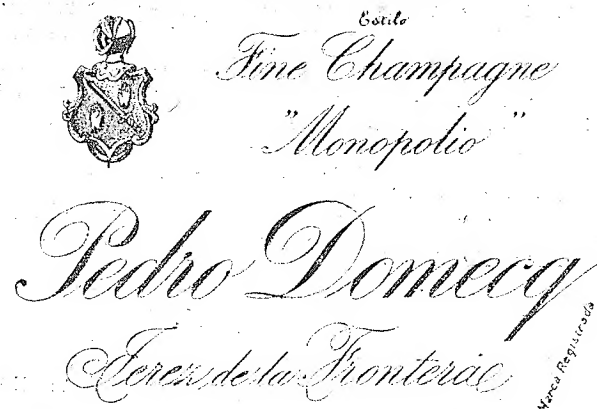 Estilo
Fine Champagne
"Monopolio"
Pedro Domecq
Jerez de la Frontera
Marca Registrada